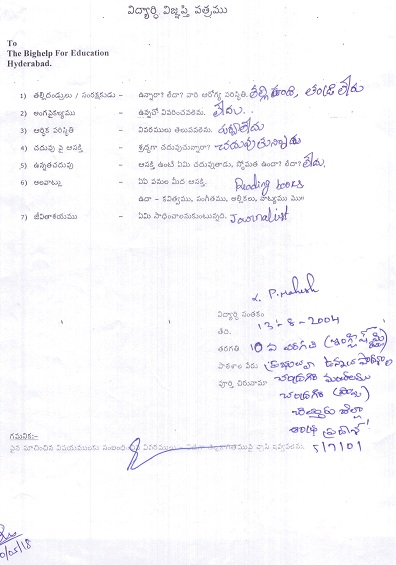 విద్యార్థి విజ్ఞప్తి పత్రము
To
The Bighelp For Education
Hyderabad.
1) తల్లిదండ్రులు / సంరక్షకుడు - ఉన్నారా? లేదా? వారి ఆరోగ్య పరిస్థితి. తల్లి ఉంది, తండ్రి లేడు
2) అంగవైకల్యము - ఉన్నచో వివరించవలెను. లేదు.
3) ఆర్థిక పరిస్థితి - వివరములు తెలుపవలెను.
4) చదువు పై ఆసక్తి - శ్రద్ధగా చదువుచున్నారా? చదువుతున్నాడు
5) ఉన్నతచదువు - ఆసక్తి ఉంటే ఏమి చదువుతాడు, స్తోమత ఉందా? లేదా? లేదు.
6) అలవాట్లు - ఏఏ పనుల మీద ఆసక్తి. Reading books
ఉదా - కవిత్వము, సంగీతము, అల్లికలు, నాట్యము
7) జీవితాశయము - ఏమి సాధించాలనుకుంటున్నది. Journalist
P. Mahesh
విద్యార్థి సంతకం
తేది. 13-8-2004
తరగతి 10 వ తరగతి
పాఠశాల పేరు ఉన్నత పాఠశాల
పూర్తి చిరునామా చంద్రగిరి మండలము
చంద్రగిరి
చిత్తూరు జిల్లా
ఆంధ్ర ప్రదేశ్
గమనిక:-
పైన సూచించిన విషయములకు సంబంధించిన వివరములు వ్రాసి ఇవ్వవలెను. 517101